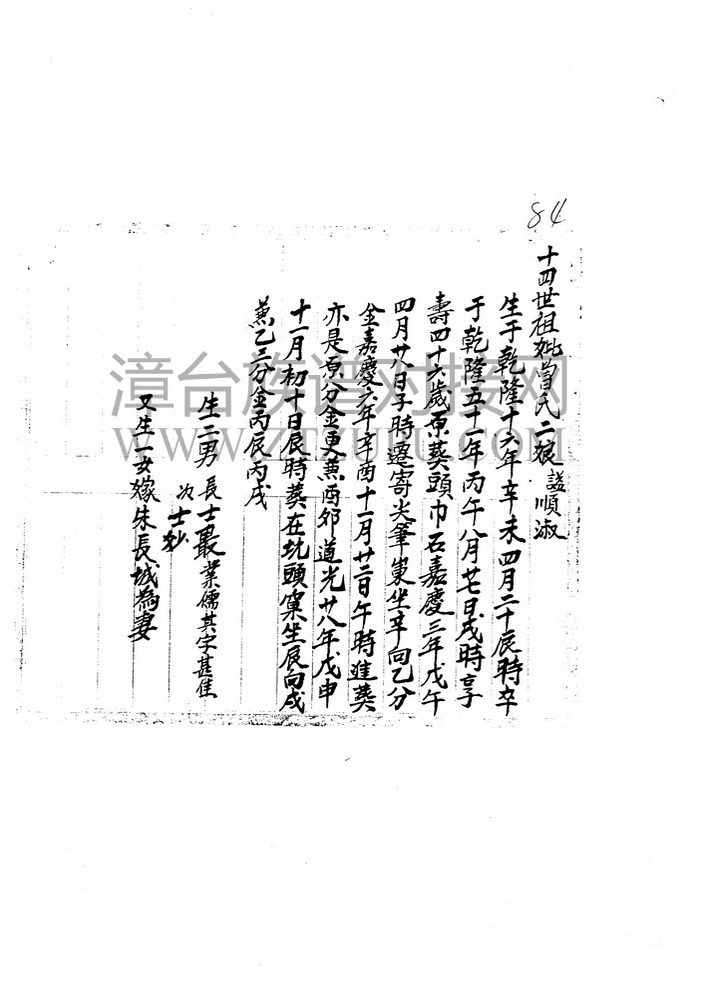 84
十四世祖妣曾氏二娘 諡順淑
生于乾隆十六年辛未四月二十辰時卒
于乾隆五十一年丙午八月廿七日戌時享
壽四十六歲原葬頭巾石嘉慶三年戊午
四月廿八日子時遷寄尖筆崬坐辛向乙分
金嘉慶六年辛酉十一月廿二日午時進葬
亦是原分金更兼酉卯道光廿八年戊申
十一月初十日辰時葬在坑頭窠坐辰向戌
兼乙三分金丙辰丙戌
生二男 長士最 業儒其字甚佳
次士紗
又生一女嫁朱長城為妻
漳台族谱对接网
WWW.ZTZUPU.COM